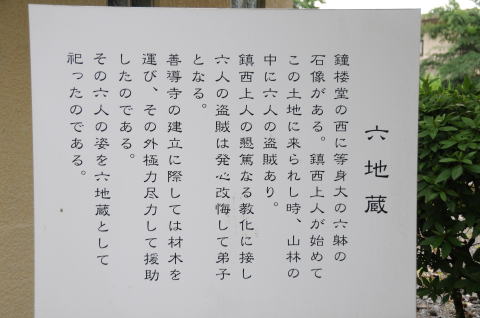 六地蔵
鐘楼堂の西に等身大の六躰の
石像がある。鎮西上人が始めて
この土地に来られし時、山林の
中に六人の盗賊あり。
鎮西上人の懇篤なる教化に接し
六人の盗賊は発心改悔して弟子
となる。
善導寺の建立に際しては材木を
運び、その外極力尽力して援助
したのである。
その六人の姿を六地蔵として
祀ったのである。